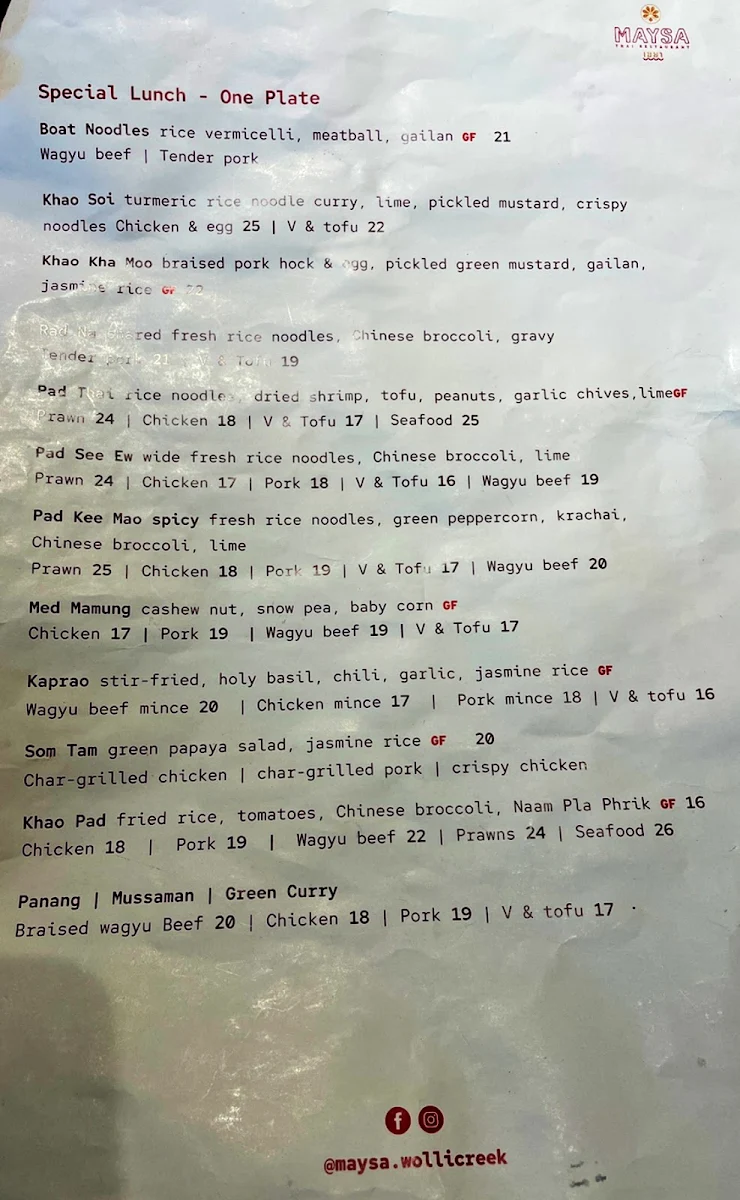 MAYSA
THAI RESTAURANT
Special Lunch - One Plate
Boat Noodles rice vermicelli, meatball, gailan GF 21
Wagyu beef | Tender pork
Khao Soi turmeric rice noodle curry, lime, pickled mustard, crispy
noodles Chicken & egg 25 | V & tofu 22
Khao Kha Moo braised pork hock & egg, pickled green mustard, gailan,
jasmine rice GF
Rad Na fresh rice noodles, Chinese broccoli, gravy
Tender pork 21 & Tofu 19
Pad Thai rice noodles, dried shrimp, tofu, peanuts, garlic chives,limeGF
Prawn 24 | Chicken 18 | V & Tofu 17 | Seafood 25
Pad See Ew wide fresh rice noodles, Chinese broccoli, lime
Prawn 24 | Chicken 17 | Pork 18 | V & Tofu 16 | Wagyu beef 19
Pad Kee Mao spicy fresh rice noodles, green peppercorn, krachai,
Chinese broccoli, lime
Prawn 25 | Chicken 18 | Pork 19 | V & Tofu 17 | Wagyu beef 20
Med Mamung cashew nut, snow pea, baby corn GF
Chicken 17 | Pork 19 | Wagyu beef 19 | V & Tofu 17
Kaprao stir-fried, holy basil, chili, garlic, jasmine rice GF
Wagyu beef mince 20 | Chicken mince 17 | Pork mince 18 | V & tofu 16
Som Tam green papaya salad, jasmine rice GF 20
Char-grilled chicken | char-grilled pork | crispy chicken
Khao Pad fried rice, tomatoes, Chinese broccoli, Naam Pla Phrik GF 16
Chicken 18 | Pork 19 | Wagyu beef 22 | Prawns 24 | Seafood 26
Panang | Mussaman | Green Curry
Braised wagyu Beef 20 | Chicken 18 | Pork 19 | V & tofu 17
@maysa.wollicreek